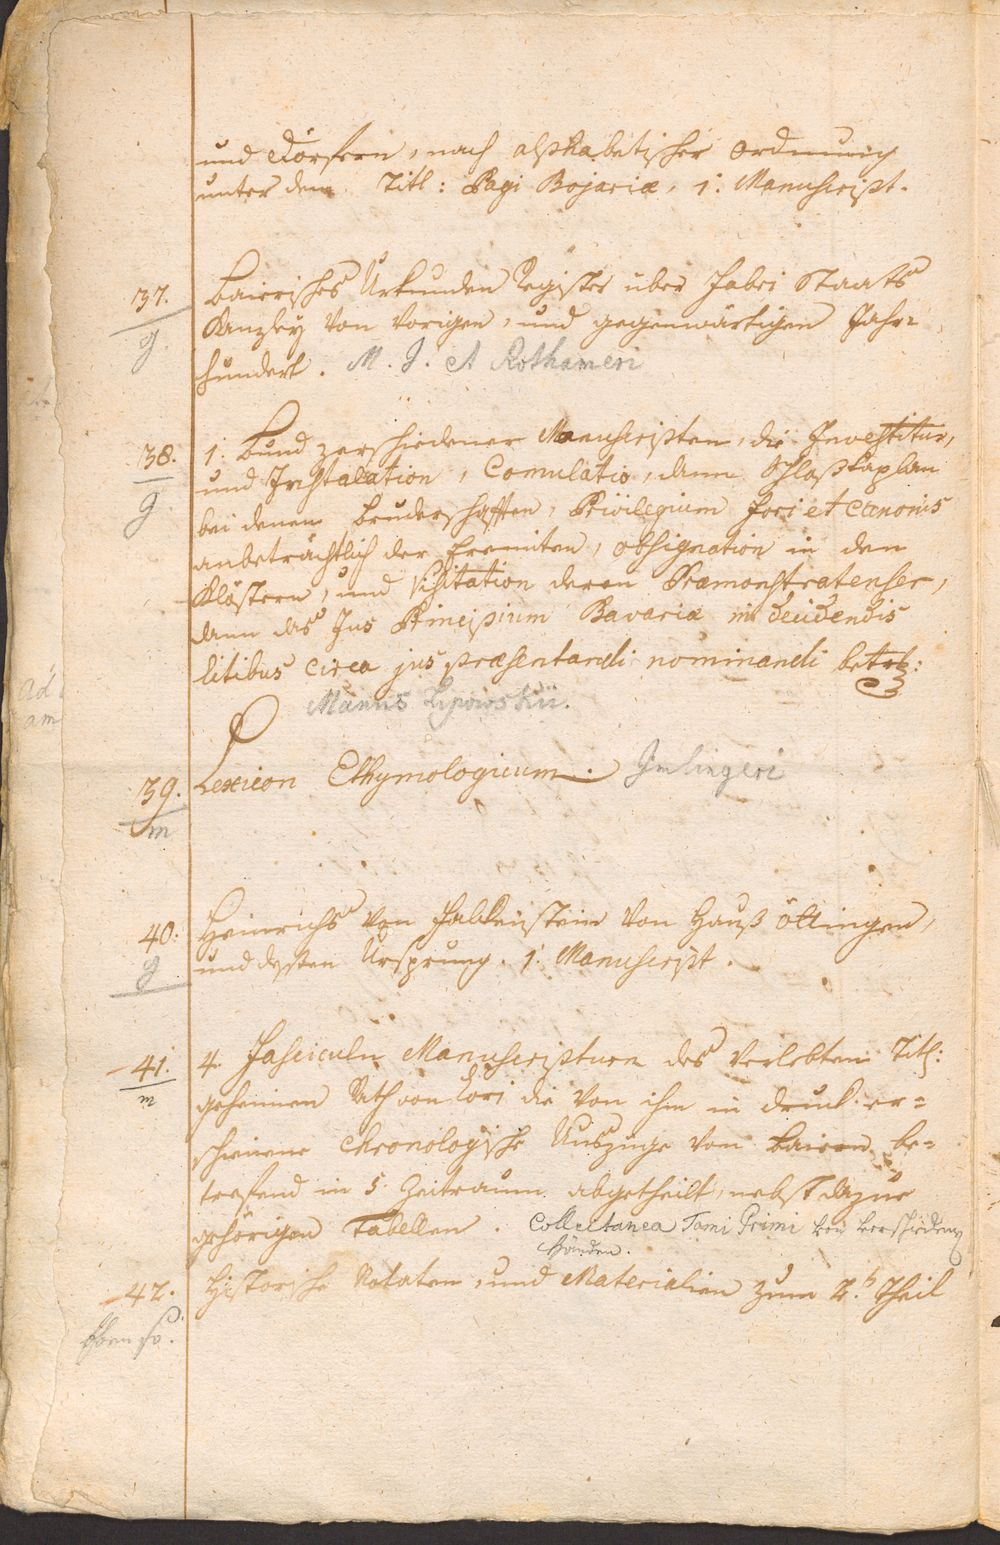 und Dörfern, nach alphabetischer Ordnung
unter dem Titl: Pagi Bojariæ, 1: Manuscript.
37. Bairisches Urkunden Register über Fabri Staats
g Kanzley von vorigen, und gegenwärtigen Jahr=
hundert. M. J. A Rothameri
38. 1: Bund zerschiedener Manuscripten, die Investitur,
und Installation, Comulatio, dann Schloßkaplan
g bei denen Bruderschafften, Privilegium fori et Canonis
anbeträchtlich der Eremiten, obsignation in den
Klöstern, und Visitation deren Præmonstratenser,
dann das Jus Principium Bavariæ in decidendis
litibus circa jus præsentandi nominandi betrf:
Manus Lipowskii.
39. Lexicon Ethymologicum. Imlingeri
m
40. Heinrichs von Falkenstein von Hauß öttingen,
g und dessen Ursprung. 1: Manuscript.
41. 4. Fasciculn Manuscripturn des verlebten Titl:
m geheimen Rath von Lori die von ihm in druck er=
schienene Chronologische Auszüge von Baiern be=
treffend in 5. Zeitraum abgetheilt, nebst dazue
gehörigen Tabellen. Collectanea Tomi Primi von verschiedenen
Händen.
42. Historische Notaten, und Materialien zum 2.t Theil
Eben so.